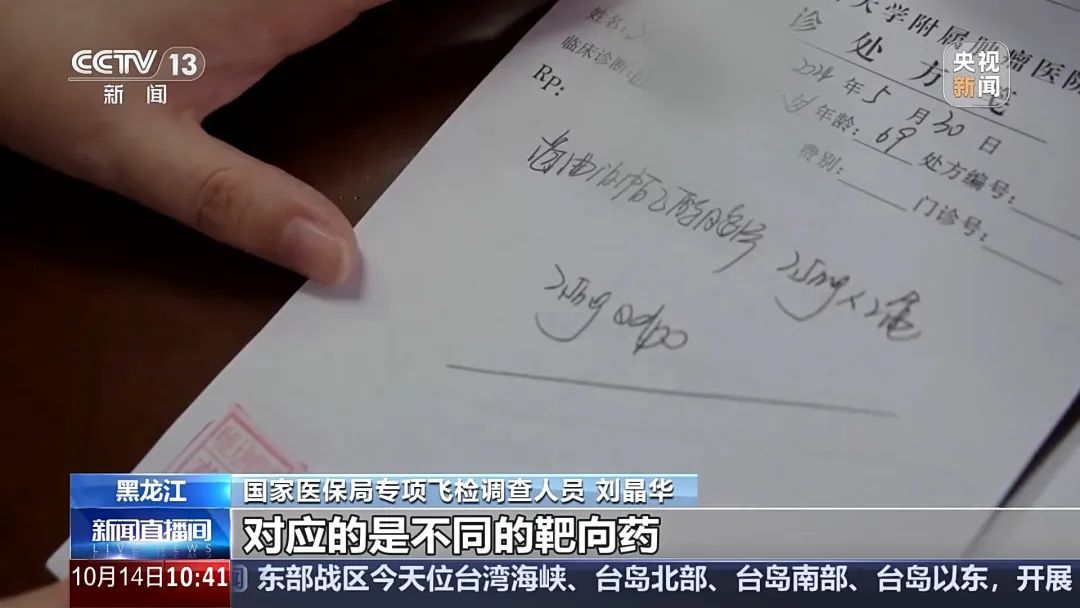 CCTV 13
新闻
央视
新闻
大学附属肿瘤医院
诊处方笺
2024年5月30日
姓名:
女 年龄: 69 处方编号:
临床诊断
费别: 门诊号:
Rp:
海曲泊帕乙醇胺片 2.5mg×2盒
2.5mg qd po
黑龙江
国家医保局专项飞检调查人员 刘晶华
新闻直播间
LIVE NEWS
对应的是不同的靶向药
10月14日10:41
东部战区今天位台湾海峡、台岛北部、台岛南部、台岛以东，开展